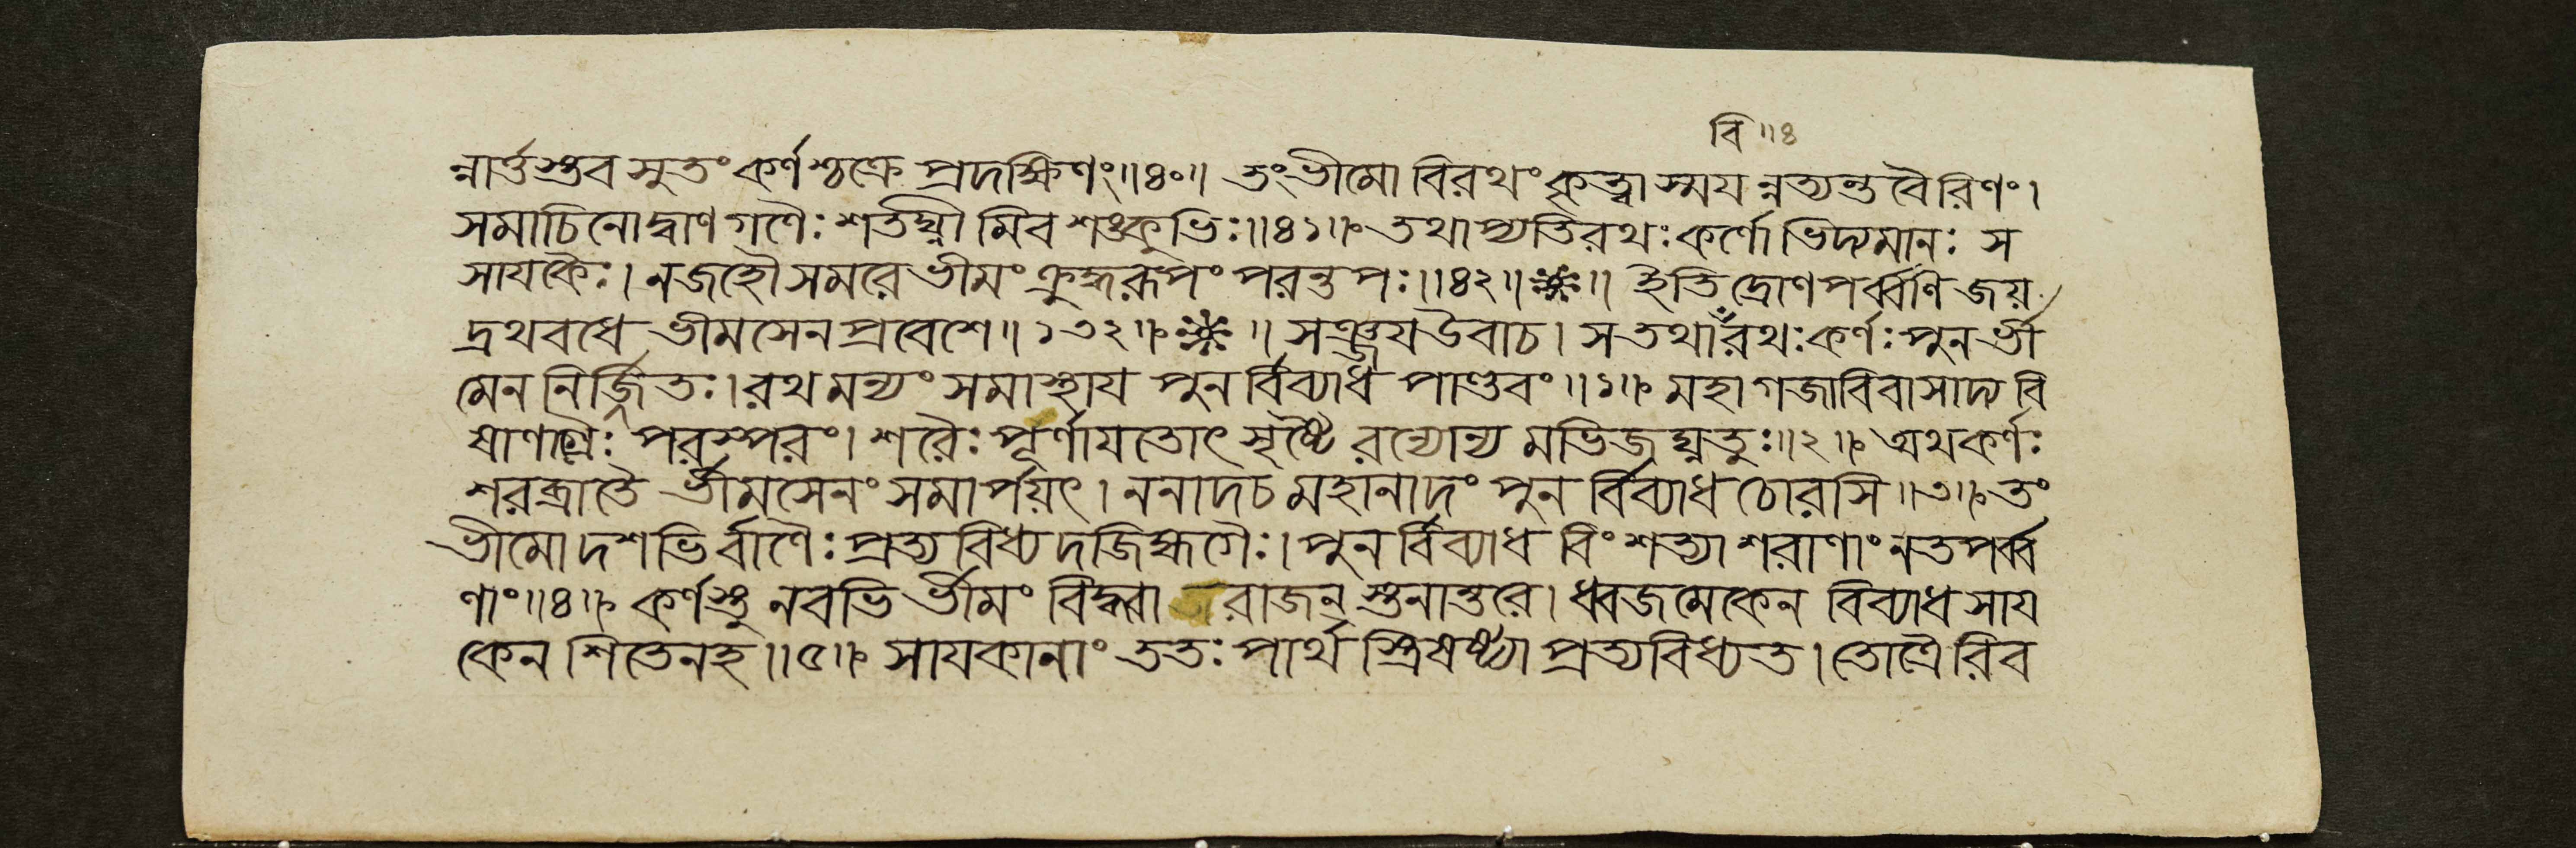 বি ॥৪
ন্নার্ত্তস্তব সুতং কর্ণশ্চক্রে প্রদক্ষিণং॥৪০॥ তং ভীমো বিরথং কৃত্বা স্ময়ন্নত্যন্তবৈরিণং।
সমাচিনোদ্বাণগণৈঃ শতঘ্নীমিব শঙ্কুভিঃ॥৪১॥ তথাপ্যতিরথঃ কর্ণো ভিদ্যমানঃ স
সাযকৈঃ। ন জহৌ সমরে ভীমং ক্রুদ্ধরূপং পরন্তপঃ॥৪২॥ ※ ॥ ইতি দ্রোণপর্ব্বণি জয়
দ্রথবধে ভীমসেনপ্রবেশে॥ ১৩২॥ ※ ॥ সঞ্জয উবাচ। স তথা রথঃ কর্ণঃ পুনর্ভী
মেন নির্জ্জিতঃ। রথমন্যং সমাস্থায পুনর্বিব্যাধ পাণ্ডবং॥১॥ মহাগজাবিবাসাদ্য বি
ষাণাগ্রৈঃ পরস্পরং। শরৈঃ পূর্ণাযতোৎসৃষ্টৈরন্যোন্যমভিজঘ্নতুঃ॥২॥ অথ কর্ণঃ
শরব্রাতৈর্ভীমসেনং সমার্পয়ৎ। ননাদ চ মহানাদং পুনর্বিব্যাধ চোরসি॥৩॥ তং
ভীমো দশভির্বাণৈঃ প্রত্যবিধ্যদজিহ্মগৈঃ। পুনর্বিব্যাধ বিংশত্যা শরাণাং নতপর্ব্ব
ণাং॥৪॥ কর্ণস্তু নবভির্ভীমং বিদ্ধ্বা রাজন্ স্তনান্তরে। ধ্বজমেকেন বিব্যাধ সায
কেন শিতেন হ॥৫॥ সাযকানাং ততঃ পার্থস্ত্রিষষ্ট্যা প্রত্যবিধ্যত। তোত্রৈরিব